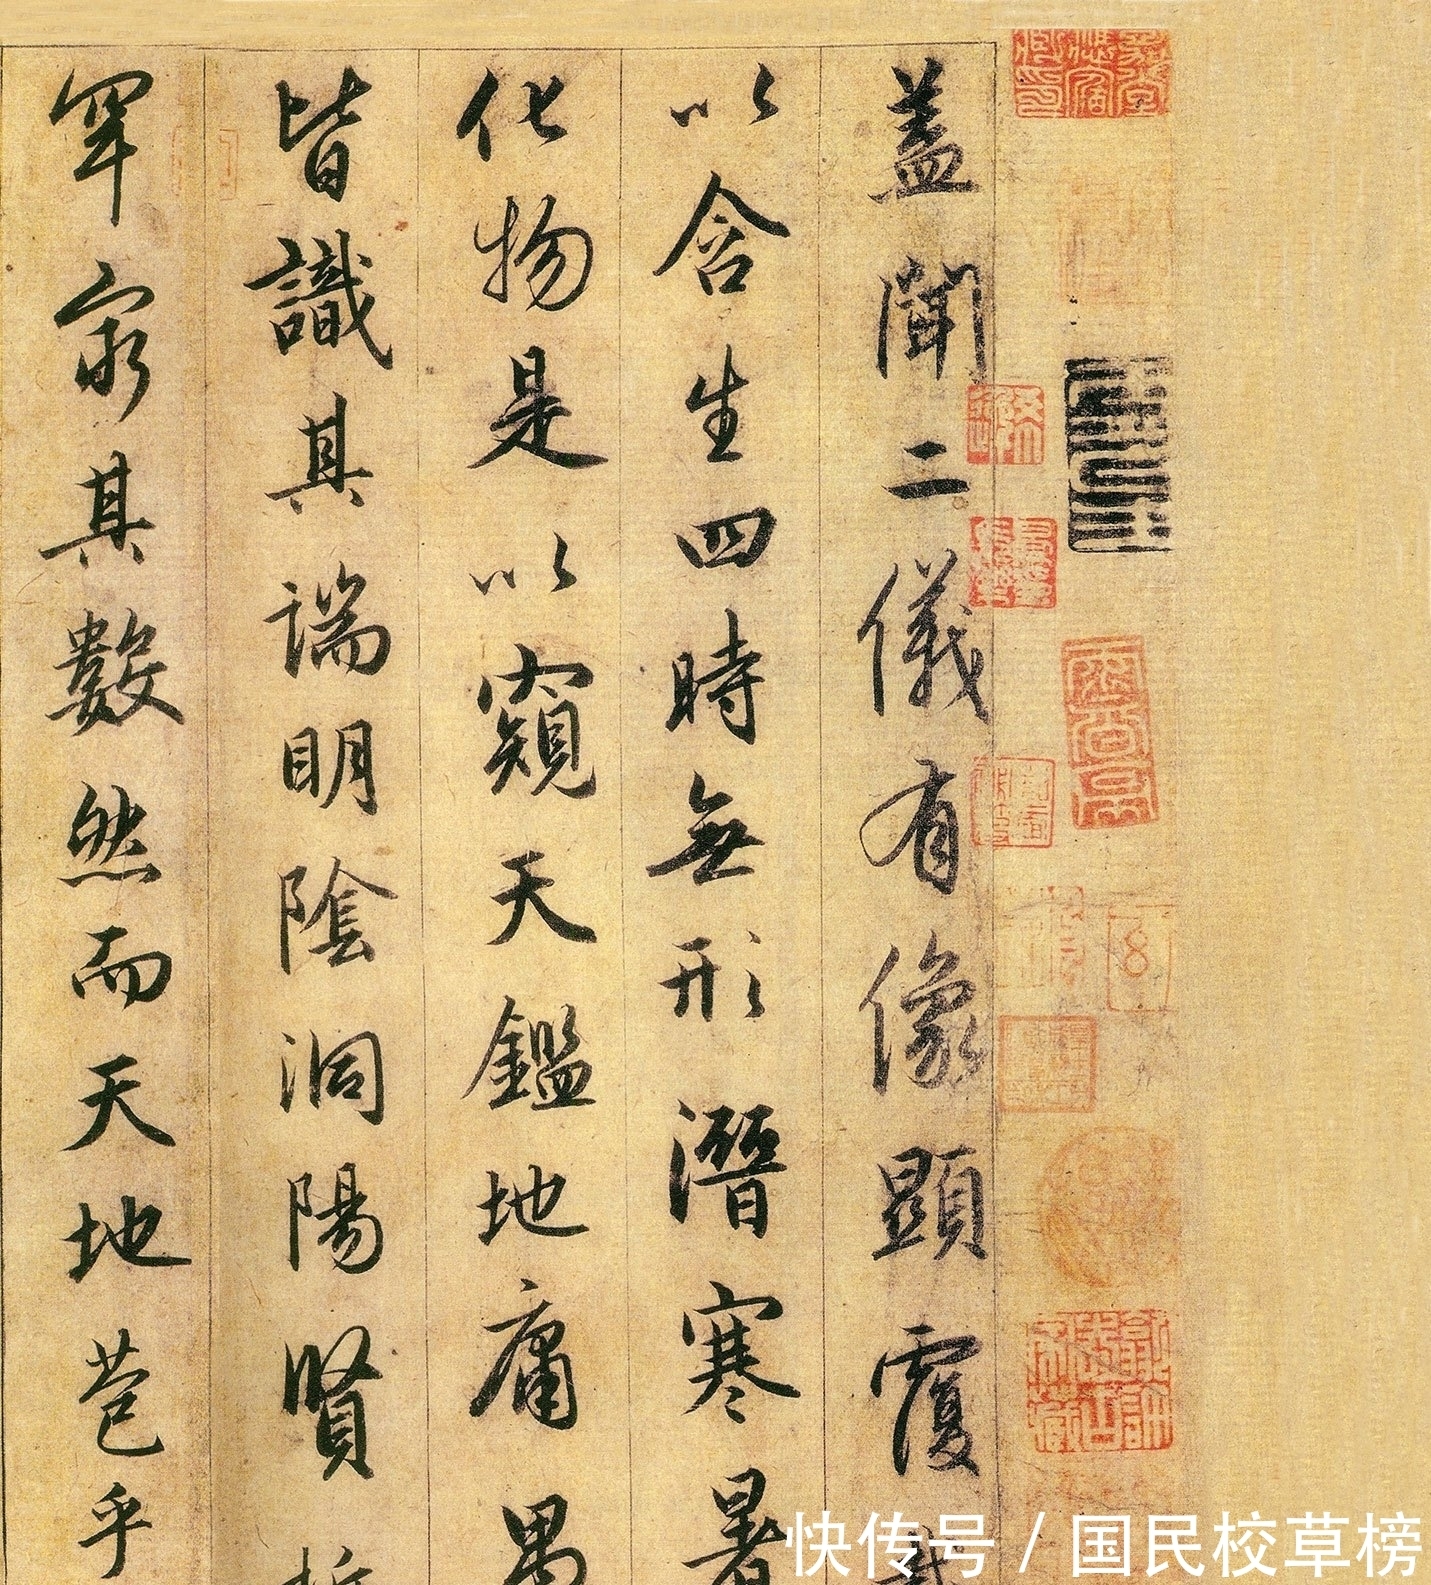 蓋聞二儀有像顯覆載
以含生四時無形潛寒暑
化物是以窺天鑑地庸愚
皆識其端明陰洞陽賢哲
罕窮其數然而天地苞乎
快传号/国民校草榜